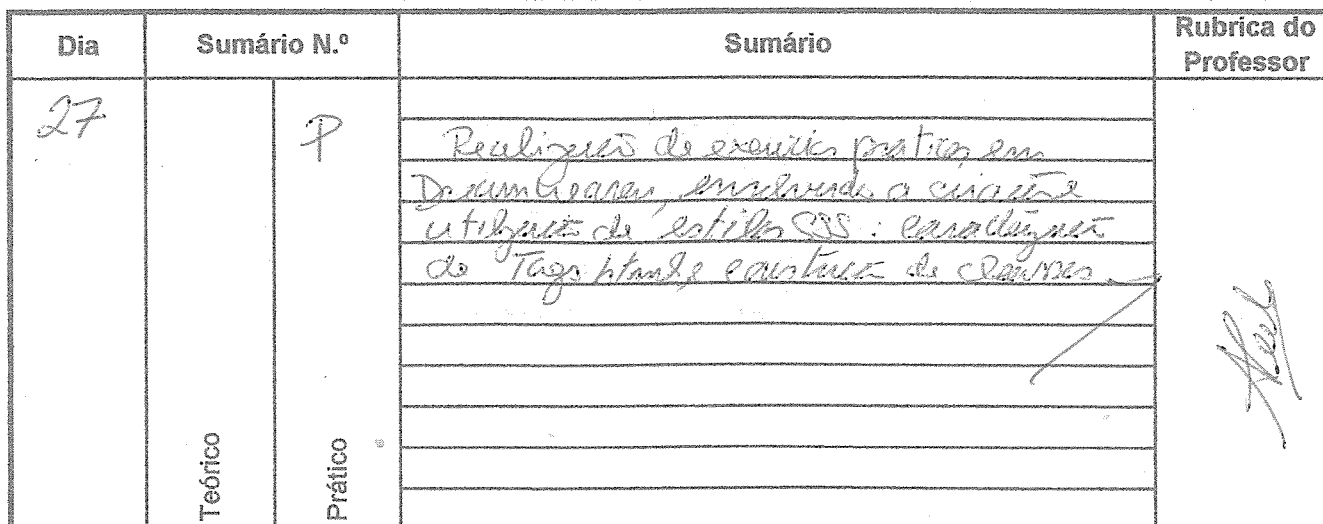 Dia
Sumário N.º
Sumário
Rubrica do
Professor
27
P
Realização de exercícios práticos em
Dreamweaver, envolvendo a criação e
utilização de estilos CSS : caracterização
de Tags html e construção de classes
Teórico
Prático